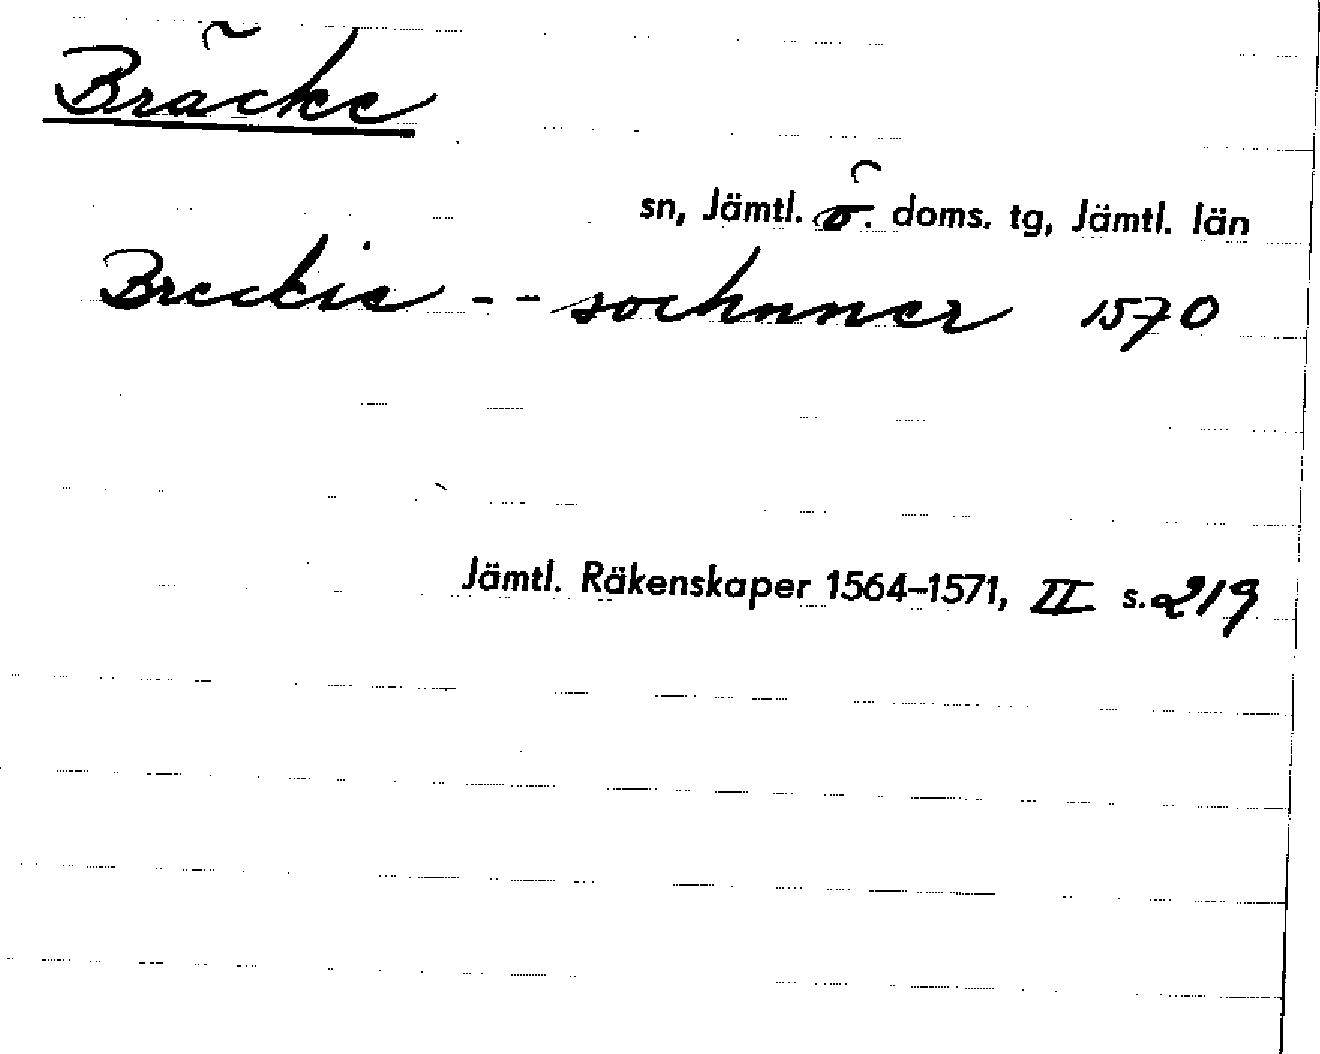 Bräcke
sn, Jämtl. ö. doms. tg, Jämtl. län
Breckie -- sochnner 1570
Jämtl. Räkenskaper 1564–1571, II s. 219